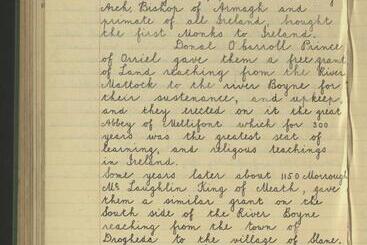 Arch, Bishop of Armagh and
primate of all Ireland, brought
the first Monks to Ireland.
Donal O'Carroll Prince
of Orriel gave them a free grant
of Land reaching from the River
Mattock to the river Boyne for
their sustenance, and upkeep,
and they erected on it the great
Abbey of Mellifont which for 300
years was the greatest seat of
learning, and religous teachings
in Ireland.
Some years later about 1150 Morrough
Mc Laughlin King of Meath, gave
them a similar grant on the
South side of the River Boyne
reaching from the town of
Drogheda to the village of Slane,